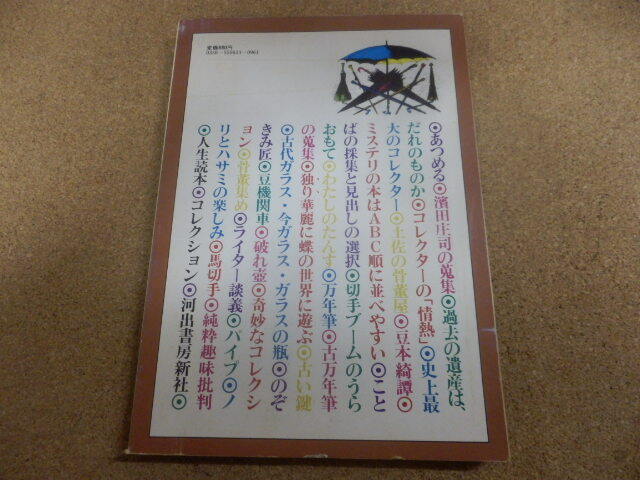 定価880円
0336-555023-0961
◉あつめる◉濱田庄司の蒐集◉過去の遺産は、
だれのものか◉コレクターの「情熱」◉史上最
大のコレクター◉土佐の骨董屋◉豆本綺譚◉
ミステリの本はABC順に並べやすい◉こと
ばの採集と見出しの選択◉切手ブームのうら
おもて◉わたしのたんす◉万年筆◉古万年筆
の蒐集◉独り華麗に蝶の世界に遊ぶ◉古い鍵
◉古代ガラス・今ガラス・ガラスの瓶◉のぞ
きみ匠◉豆機関車◉破れ壺◉奇妙なコレクシ
ョン◉骨董集め◉ライター談義◉パイプ◉ノ
リとハサミの楽しみ◉馬切手◉純粋趣味批判
◉人生読本◉コレクション◉河出書房新社◉